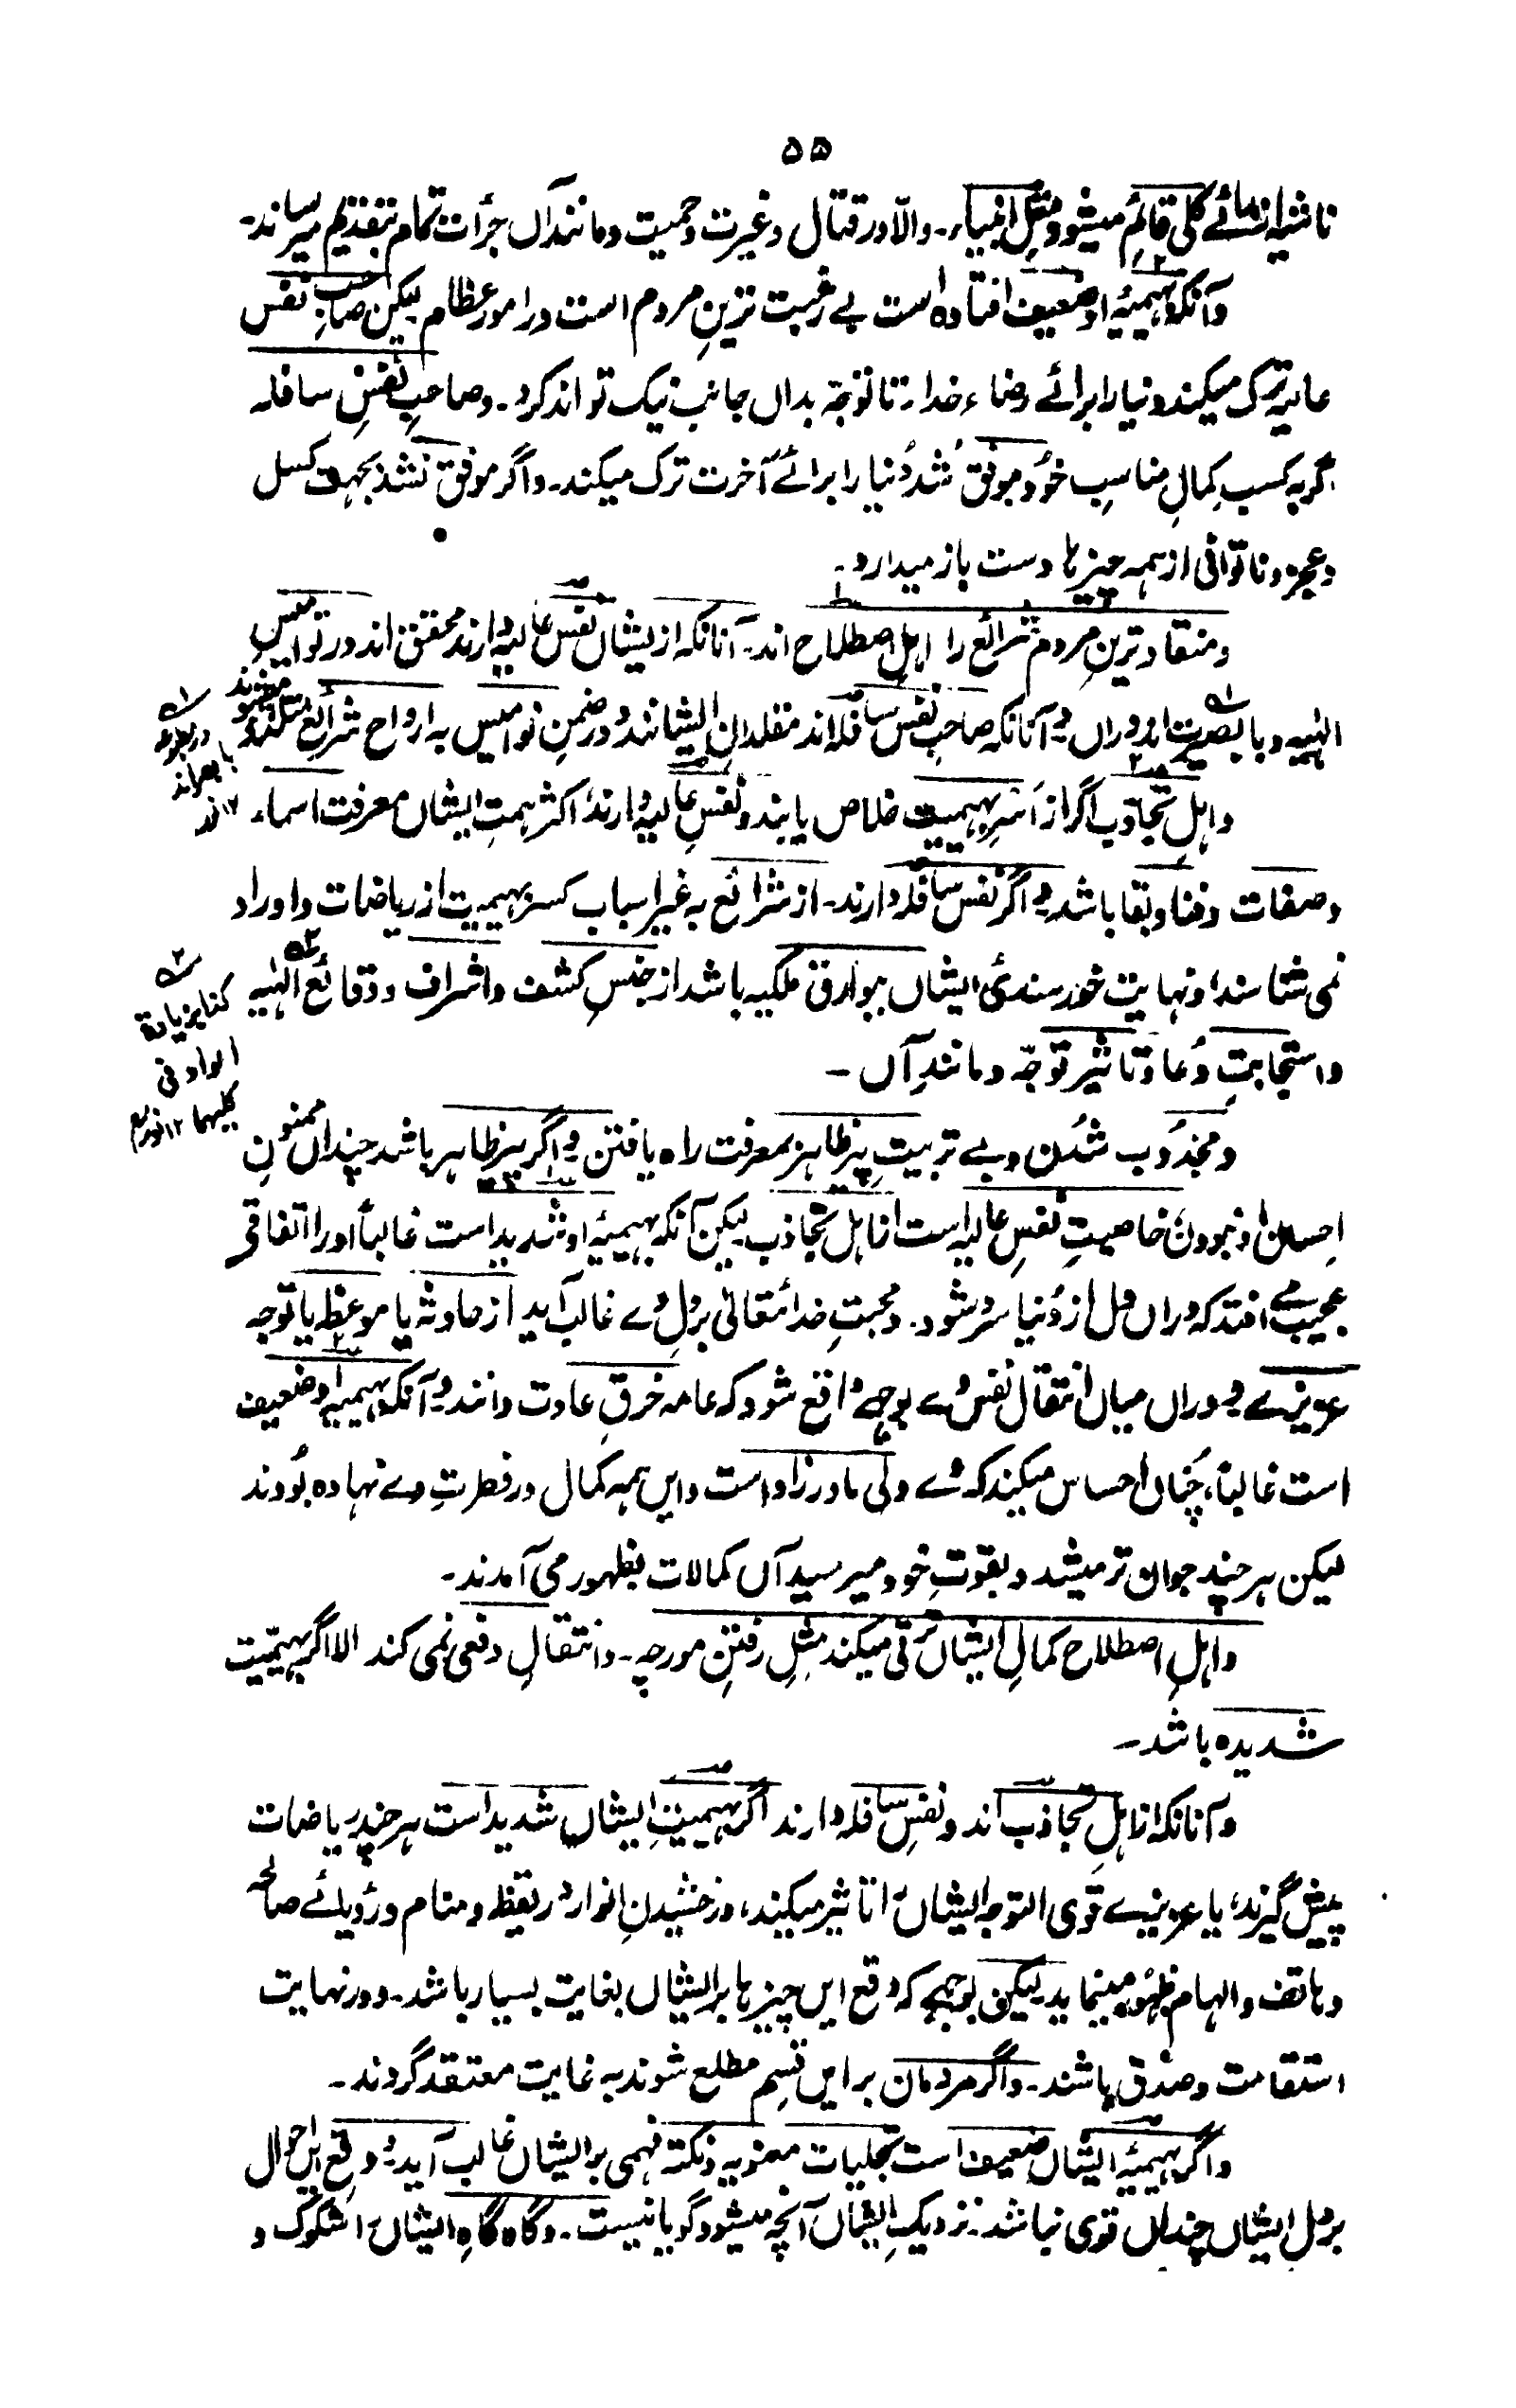 ۵۵
ناشیہ انشائے کلی قائم میشود مثل انبیاء۔ والّا در قتال و غیرت و حمیت و مانند آں جرأت تمام بتقدیم میرساند۔
وآنکہ بہیمیۂ او ضعیف افتادہ است بے رغبت ترینِ مردم است در امور عظام لیکن صاحبِ نفس
عالیہ ترک میکند دنیا را برائے رضاء خدا۔ تا توجّہ بداں جانب نیک تواند کرد۔ و صاحبِ نفسِ سافلہ
گر بہ کسبِ کمالِ مناسبِ خود موفق شد دُنیا را برائے آخرت ترک میکند۔ و اگر موفق نشد بجہت کسل
و عجز و ناتوانی از ہمہ چیز ہا دست باز میدارد۔
و منقاد ترینِ مردم شرائع را اہلِ اصطلاح اند۔ آنانکہ ازیشاں نفس عالیہ دارند محقق اند در نوامیسِ
الٰہیہ و با بصیرت اند دراں و آنانکہ صاحبِ نفسِ سافلہ اند مقلدانِ ایشانند و در ضمنِ نوامیس بہ ارواح شرائع متلذذ میشوند
و اہلِ تجاذب اگر از اَسرِ بہیمیت خلاص یابند و نفسِ عالیہ دارند اکثر ہمتِ ایشاں معرفت اسماء
و صفات و فنا و بقا باشد و اگر نفس سافلہ دارند۔ از شرائع بہ غیر اسباب کسر بہیمیت از ریاضات و اوراد
نمی شناسند، و نہایت خورسندیٔ ایشاں بوارق ملکیہ باشد از جنسِ کشف و اشراف و وقائع الٰہیہ
و استجابتِ دُعا و تاثیر توجّہ و مانندِ آں ۔
و مجذوب شدن و بے تربیتِ پیر ظاہر بمعرفت راہ یافتن و اگر پیر ظاہر باشد چنداں ممنونِ
اِحسانِ او نبودن خاصیتِ نفسِ عالیہ است از اہلِ تجاذب لیکن آنکہ بہیمیۂ او شدید است غالباً او را اتفاقی
عجیب مے افتد کہ دراں دل از دُنیا سرد شود۔ و محبتِ خدائے تعالیٰ بر دلِ وے غالب آید از حادثہ یا موعظہ یا توجہ
عزیزے و دراں میاں انتقال نفس وے بوجہے واقع شود کہ عامہ خرقِ عادت دانند و آنکہ بہیمیہ او ضعیف
است غالباً، چُناں احساس میکند کہ وے ولی مادر زاد است و ایں ہمہ کمال در فطرتِ وے نہادہ بُودند
لیکن ہر چند جوان تر میشد و بقوتِ خود میرسید آں کمالات بظہور می آمدند۔
و اہلِ اصطلاح کمالِ ایشاں ترقی میکند مثلِ رفتنِ مورچہ۔ و انتقالِ دفعی نمی کند الا اگر بہیمیّت
شدیدہ باشد۔
و آنانکہ از اہلِ تجاذب اند و نفسِ سافلہ دارند اگر بہیمیتِ ایشاں شدید است ہر چند ریاضات
پیش گیرند، یا عزیزے قوی التوجہ ایشاں را تاثیر میکند، درخشیدنِ انوار در یقظہ و منام و رؤیائے صالحہ
و ہاتف و الہام ظہور مینماید لیکن بوجہے کہ وقع ایں چیز ہا بر ایشاں بغایت بسیار باشد۔ و در نہایت
استقامت و صدق باشند۔ و اگر مردمان بر ایں قسم مطلع شوند بہ غایت معتقد گردند۔
و اگر بہیمیۂ ایشاں ضعیف است تجلیات معنویہ و نکتہ فہمی بر ایشاں غالب آید و وقع ایں احوال
بر دل ایشاں چنداں قوی نباشد۔ نزدیکِ ایشاں آنچہ میشود گویا نیست۔ و گاہ گاہ ایشاں را شکوک و
کنا بزیادۃ
الواو فی
کلیہما ۱۲